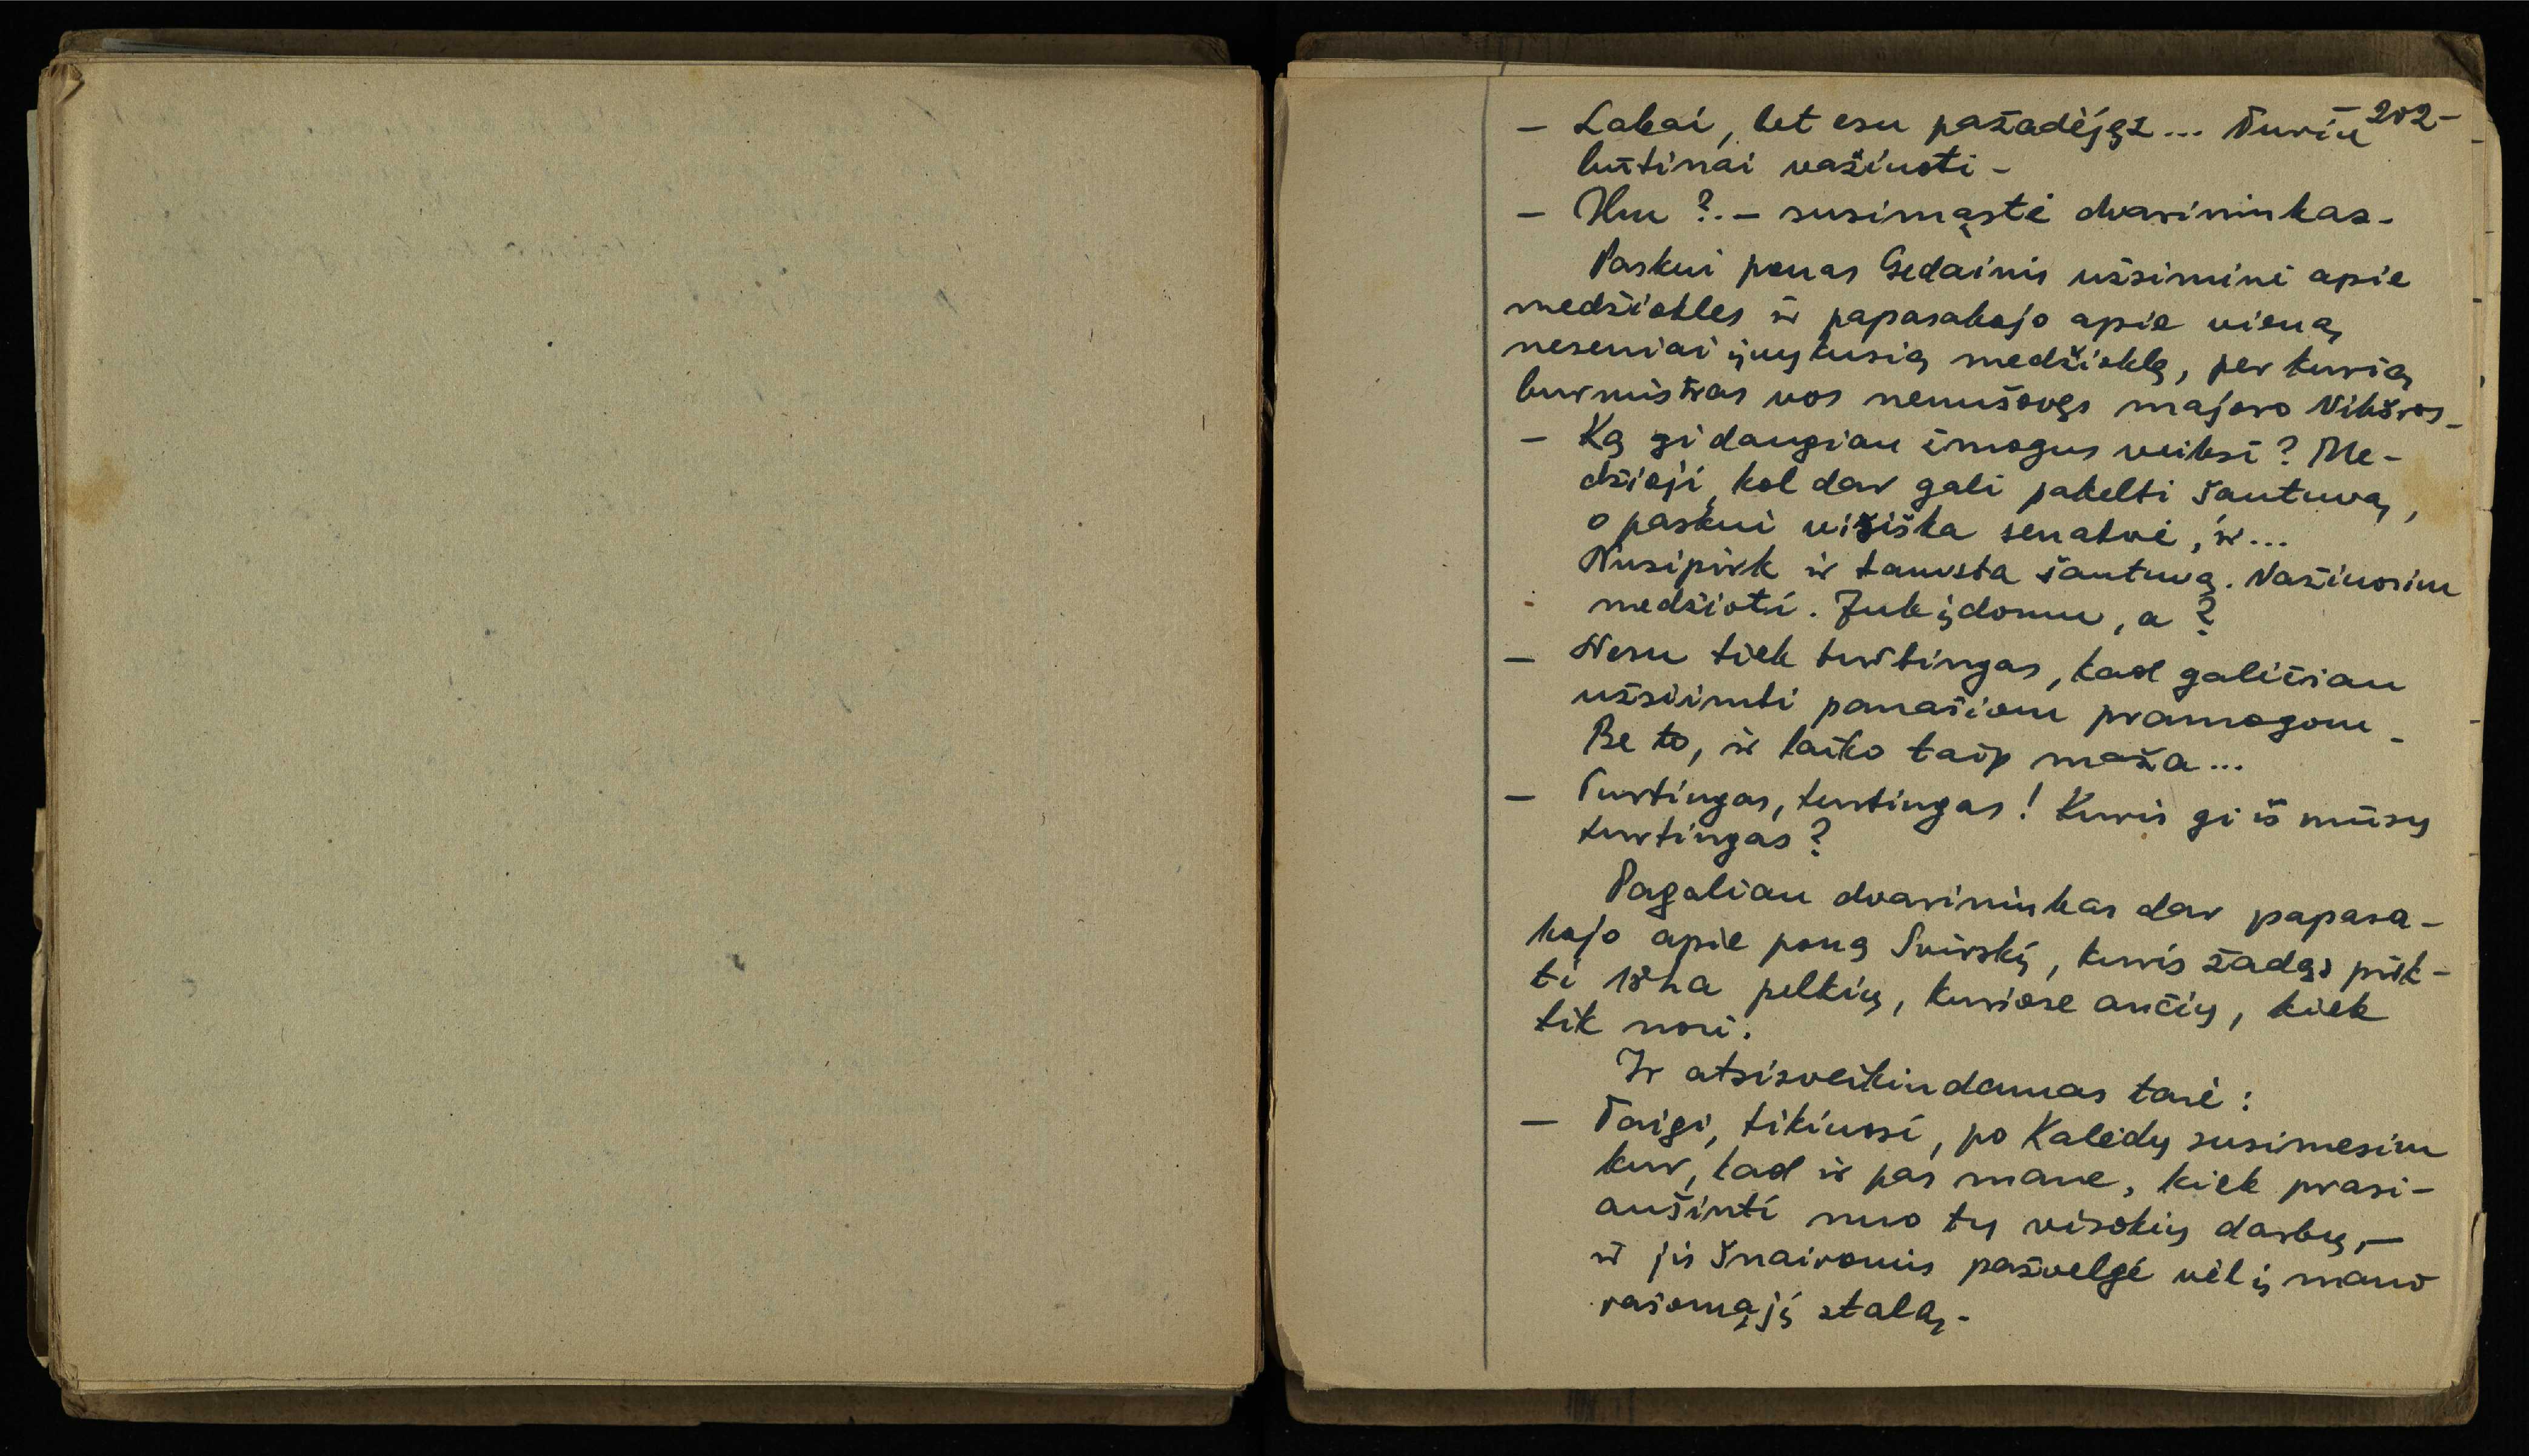 202-
– Labai, bet esu pažadėjęs... Turiu
būtinai važiuoti -
– Hm ?. – susimąstė dvarininkas.
Paskui ponas Gedainis užsiminė apie
medžiokles ir papasakojo apie vieną
neseniai įvykusią medžioklę, per kurią
burmistras vos nenušovęs majoro Vikšros.
– Ką gi daugiau žmogus veiksi? Me-
džioji, kol dar gali pakelti šautuvą,
o paskui visiška senatvė, ir...
Nusipirk ir tamsta šautuvą. Važiuosim
medžioti. Juk įdomu, a ?
– Nesu tiek turtingas, kad galėčiau
užsiimti panašiom pramogom.
Be to, ir laiko taip maža...
– Turtingas, turtingas! Kuris gi iš mūsų
turtingas?
Pagaliau dvarininkas dar papasa-
kojo apie poną Svirskį, kuris žadąs pirk-
ti 18 ha pelkių, kuriose ančių, kiek
tik nori.
Ir atsisveikindamas tarė:
– Taigi, tikiuosi, po Kalėdų susimesim
kur, kad ir pas mane, kiek prasi-
aušinti nuo tų visokių darbų, –
ir jis šnairomis pažvelgė vėl į mano
rašomąjį stalą.